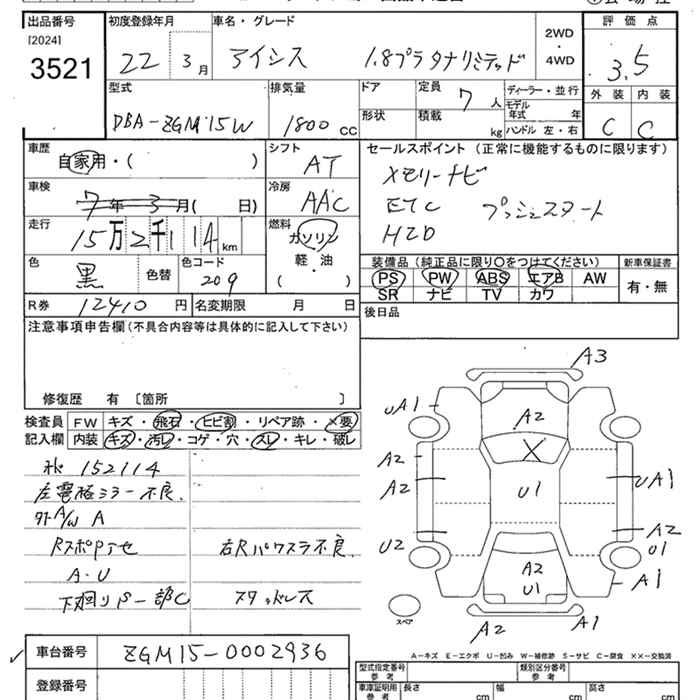 出品番号 初度登録年月 車名・グレード 2WD ・ 4WD 評価点
[2024]
3521 22 3月 アイシス 1.8プラタナリミテッド 3.5
型式 排気量 ドア 定員 7人 ディーラー・並行 外装 内装
DBA-ZGM15W 1800cc 形状 積載 kg モデル年式 年 C C
ハンドル 左・右
車歴 シフト セールスポイント (正常に機能するものに限ります)
自家用・( ) AT メモリーナビ
車検 冷房 ETC プッシュスタート
7年3月( 日) AAC HID
走行 燃料
15万2千114km ガソリン 軽・油 ( )
装備品 (純正品に限り○をつけてください) 新車保証書
色 色替 色コード PS PW ABS エアB AW 有・無
黒 209 SR ナビ TV カワ
R券 12410円 名変期限 月 日 後日品
注意事項申告欄(不具合内容等は具体的に記入して下さい)
修復歴 有 〔箇所 〕
検査員記入欄 FW キズ・飛石・ヒビ割・リペア跡・×要
内装 キズ・汚レ・コゲ・穴・スレ・キレ・破レ
152114
左電格ミラー不良.
外A/W A
RスポPテセ 右Rパワスラ不良.
A・U
下廻りPS一部C スタッドレス
A3
UA1 A2
A2
A2 U1 UA1
A2
U2 U1
A2 A1
U1
スペア
A2 A1
A-キズ E-エクボ U-凹み W-補修跡 S-サビ C-腐食 XX-交換済
車台番号 ZGM15-0002936 型式指定番号 参考 類別区分番号 参考
登録番号 車庫証明用 参考 長さ cm 幅 cm 高さ cm